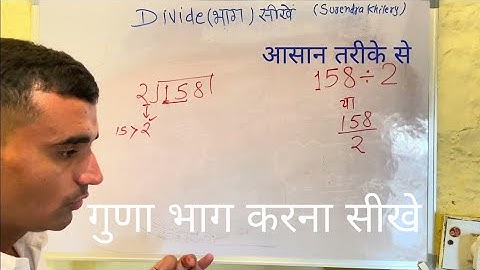 Divide(भाग) सीखें (Surendra Khilery)
आसान तरीके से
2)158
15>2
158÷2
या
158
2
गुणा भाग करना सीखे